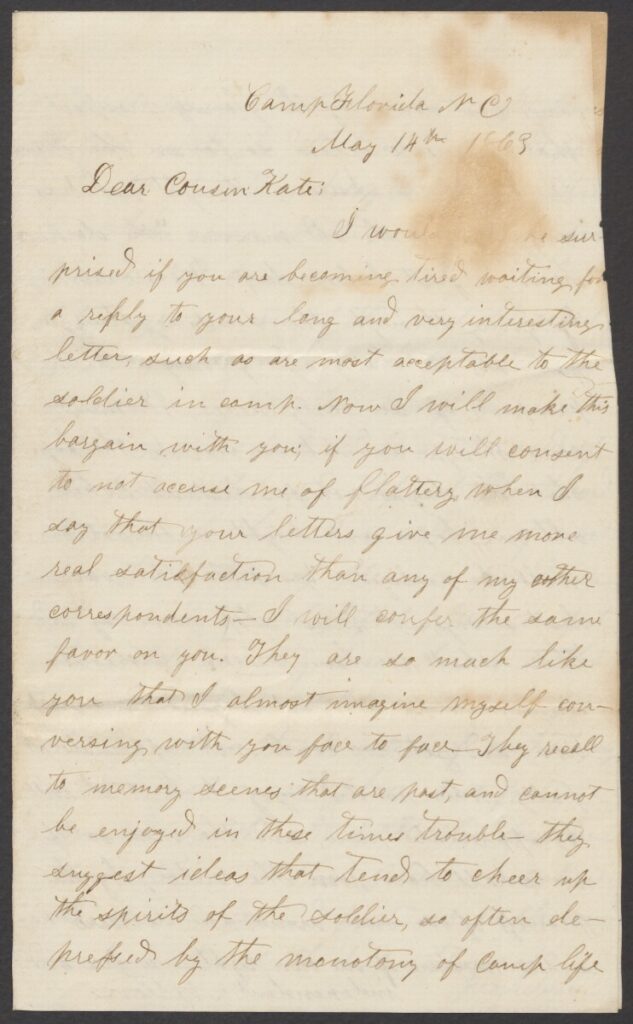 Camp Florida N C
May 14th 1863
Dear Cousin Kate;
I would be sur-
prised if you are becoming tired waiting for
a reply to your long and very interesting
letter, such as are most acceptable to the
soldier in camp. Now I will make this
bargain with you; if you will consent
to not accuse me of flattery when I
say that your letters give me more
real satisfaction than any of my other
correspondents — I will confer the same
favor on you. They are so much like
you that I almost imagine myself con-
versing with you face to face — They recall
to memory scenes that are past, and cannot
be enjoyed in these times trouble — they
suggest ideas that tend to cheer up
the spirits of the soldier, so often de-
pressed by the monotony of camp life